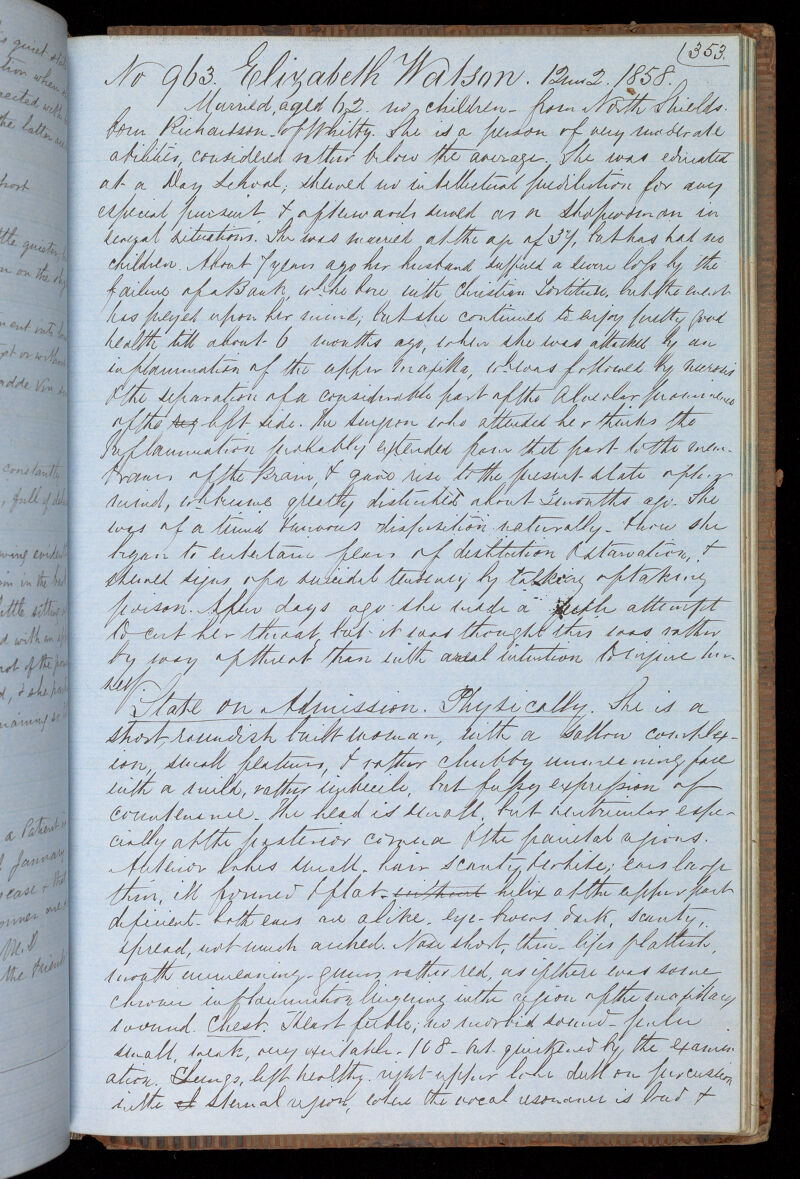 353.
No 963. Elizabeth Watson. 12 mo 2. 1858.
Married, aged 62. no children - from North Shields.
born Richardson - of Whitby. She is a person of very moderate
abilities, considered rather below the average. She was educated
at a Day School; shewed no intellectual predilection for any
especial pursuit & afterwards served as a shopwoman in
several situations. She was married at the age of 37, but has had no
children. About 7 years ago her husband suffered a severe loss by the
failure of a Bank, wh. he bore with Christian fortitude, but the event
has preyed upon her mind; but she continued to enjoy pretty good
health till about 6 months ago, when she was attacked by an
inflammation of the upper maxilla, wh. was followed by necrosis
& the separation of a considerable part of the Alveolar prominence
of the left side. The surgeon who attended her thinks the
Inflammation probably extended from that part to the mem-
branes of the Brain, & gave rise to the present state of her
mind, wh. became greatly disturbed about 3 months ago. She
was of a timid & nervous disposition naturally - & now she
began to entertain fears of destitution & starvation, &
shewed signs of a suicidal tendency by talking of taking
poison. A few days ago she made a attempt
to cut her throat, but it was thought this was rather
by way of threat than with a real intention to injure her-
self.
State on Admission. Physically. She is a
short, roundish built woman, with a sallow complex-
ion, small features, & rather chubby unmeaning face
with a mild, rather imbecile, but fussy expression of
countenance. The head is small, but ventricular espe-
cially at the posterior cornua & the parietal regions.
Anterior lobes small. hair scanty & white; ears large
thin, ill formed & flat - without helix at the upper part
deficient - both ears are alike. eye-brows dark, scanty,
spread, not much arched. Nose short, thin - lips flattish,
mouth unmeaning - gums rather red, as if there was some
chronic inflammation lingering in the region of the maxillary
wound. Chest. Heart feeble; no morbid sound - pulse
small, weak, very excitable - 108 - but quickened by the examin-
ation. Lungs, left healthy. right upper lobe dull on percussion
in the sternal region, where the vocal resonance is loud &